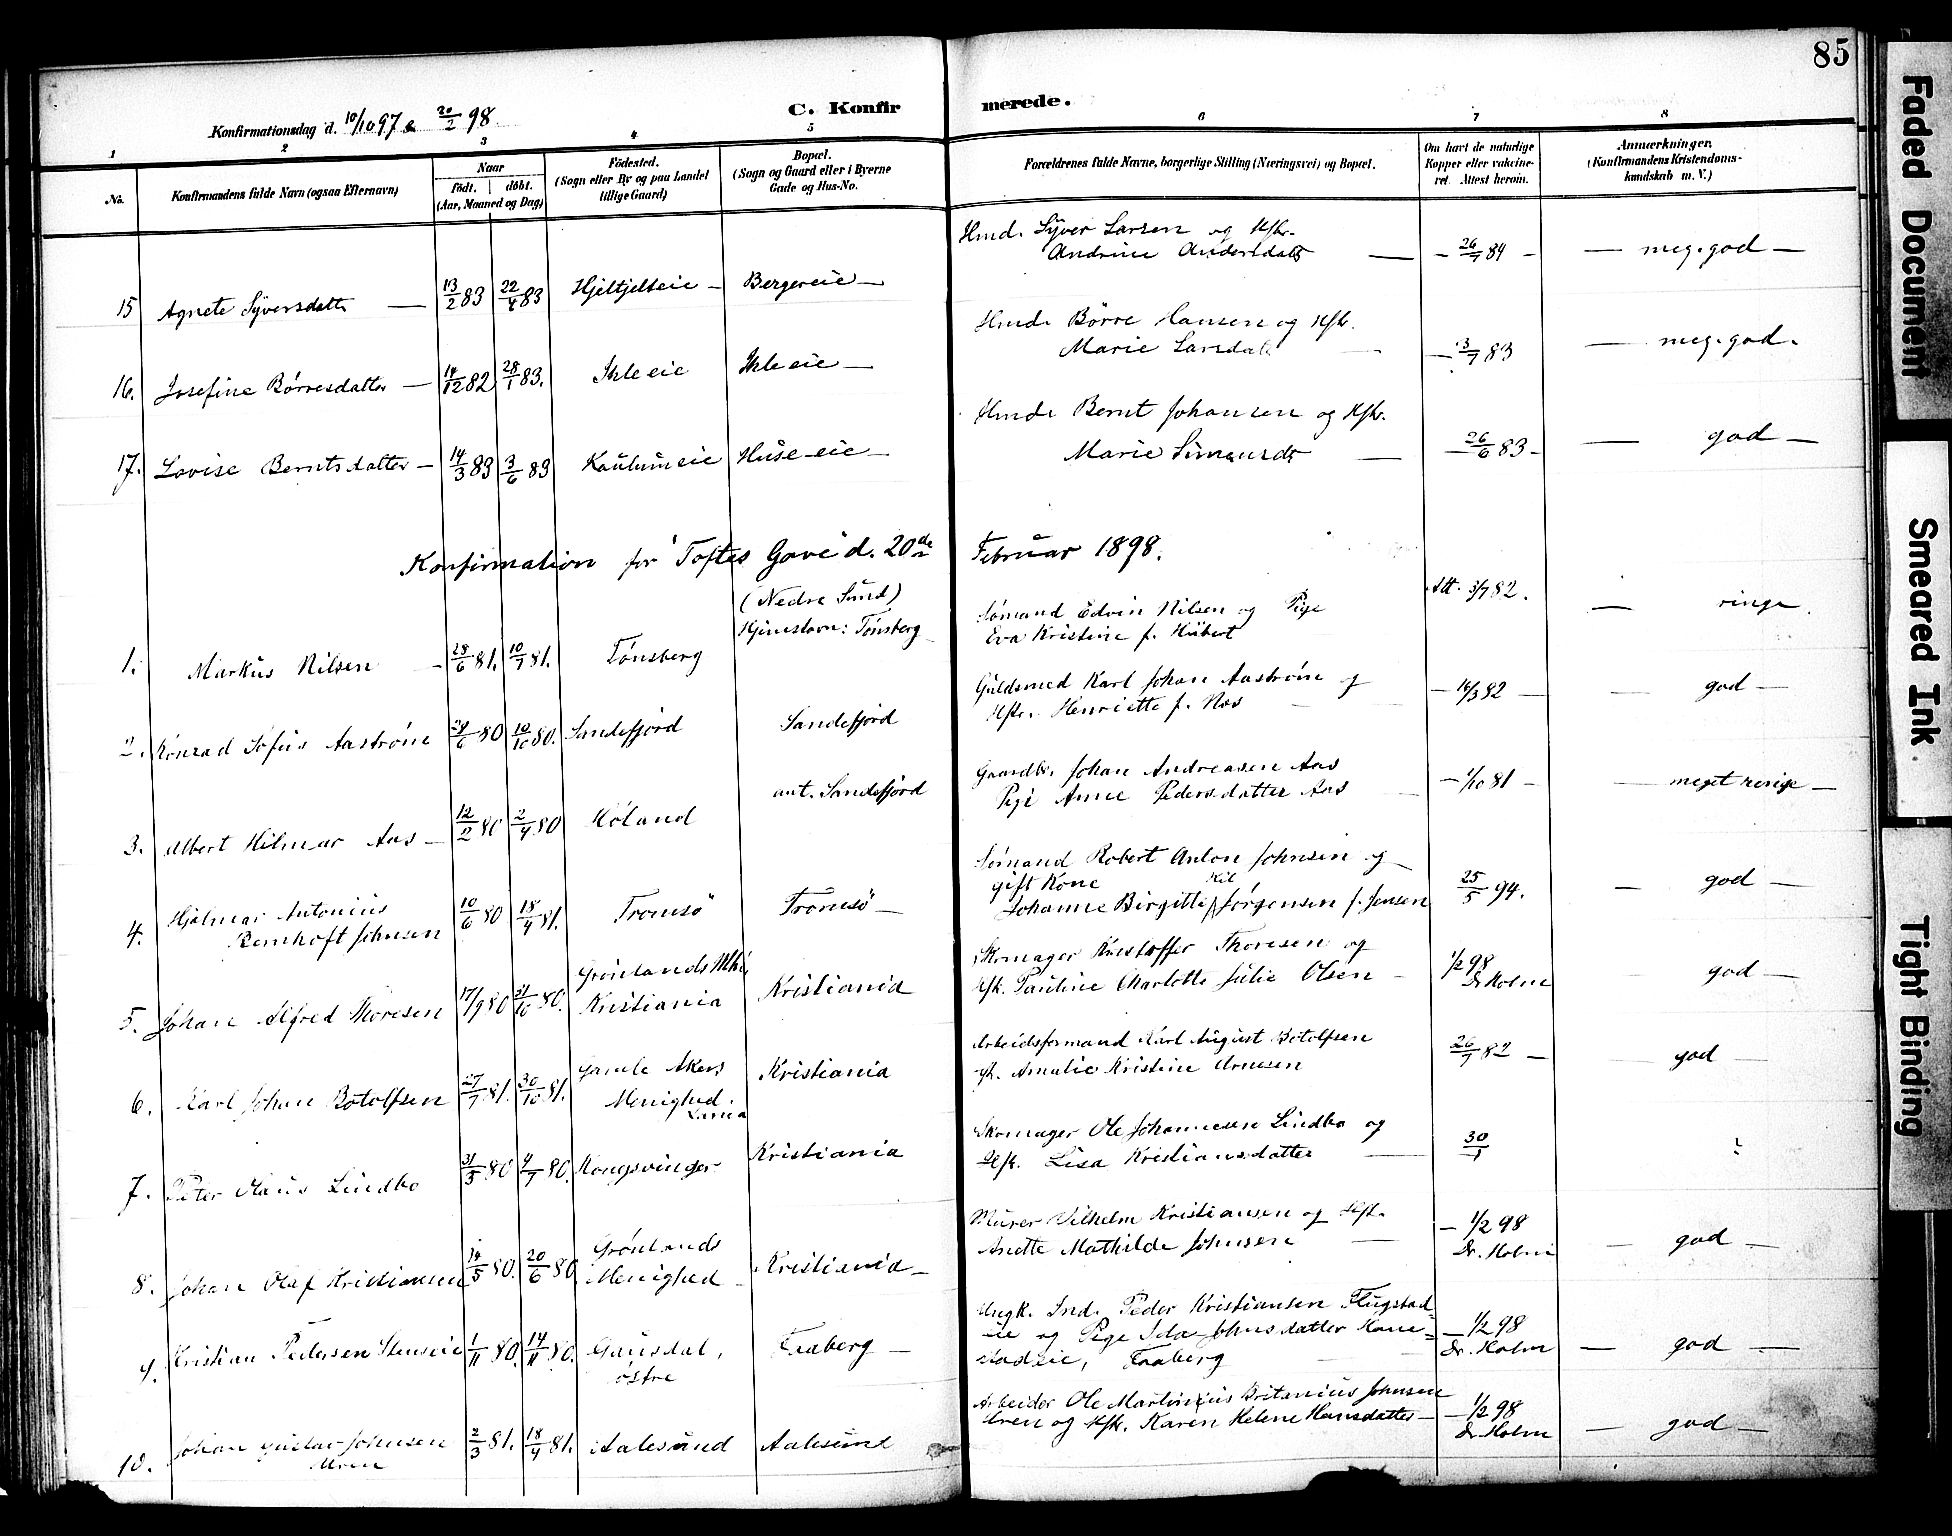 85
C. Konfirmerede.
Konfirmationsdag d. 10/10 97 & 20/2 98
1 2 3 4 5 6 7 8
No.
Konfirmandens fulde Navn (ogsaa Efternavn)
Naar
födt. döbt.
(Aar, Maaned og Dag)
Födested.
(Sogn eller By og paa Landet
tillige Gaard)
Bopæl.
(Sogn og Gaard eller i Byerne
Gade og Hus-No.
Forældrenes fulde Navne, borgerlige Stilling (Næringsvei) og Bopæl.
Om havt de naturlige
Kopper eller vakcine-
ret. Attest herom.
Anmærkninger.
(Konfirmandens Kristendoms-
kundskab m. V.)
15 Agnete Syversdatt. — 13/2 83 22/4 83 Hjeltjelteie — Bergereie —
Hmd. Syver Larsen og Hstr.
Andrine Andersdatt — – 26/7 84 – — meg. god —
16. Josefine Börresdatter — 14/12 82 28/1 83. Ihle eie Ihle eie —
Hmd. Börre Hansen og Hstr.
Marie Larsdatt — 3/7 83 — meg. god.
17. Lovise Berntsdatter — 14/3 83 3/6 83 Kaulumeie Huse eie —
Hmd. Bernt Johansen og Hstr.
Marie Simensdt — 26/6 83 – — god —
Konfirmation for "Toftes Gave" d. 20de Februar 1898.
(Nedre Sund)
Hjemstavn: Tönsberg
1. Markus Nilsen — 28/6 81. 10/7 81. Tönsberg
Sömand Edvin Nilsen og Pige
Eva Kristine f. Hübert
Att. 3/7 82. — ringe.
2. Konrad Sofus Aaström 28/6 80 10/10 80. Sandefjord Sandefjord
Guldsmed Karl Johan Aaström og
Hstr. Henriette f. Næs — 14/3 82 — — god —
3. Albert Hilmar Aas — 12/2 80 2/4 80 Höland ant. Sandefjord
Gaardbr. Johan Andreasen Aas
Pige Anne Pedersdatter Aas — 1/10 81 – — meget ringe —
4. Hjalmar Antonius
Bernhoft Johnsen 10/6 80 18/4 81. Tromsö Tromsö —
Sömand Robert Anton Johnsen og
gift Kone
Johanne Birgitte Jörgensen f. Jensen 25/5 94. — god —
5. Johan Alfred Thoresen 17/9 80 31/10 80. Grönlands Mhd.
Kristiania Kristiania
Skomager Kristoffer Thoresen og
Hstr. Pauline Charlotte Julie Olsen – 1/2 98
Dr Holm — god —
6. Karl Johan Botolfsen 27/7 81. 30/10 81. Gamle Akers
Menighed. Kristiania
Arbeidsformand Karl August Botolfsen
Amalie Kristine Arnesen 26/7 82 — god —
7. Peter Olaus Lindbo 31/3 80 4/7 80. Kongsvinger Kristiania
Skomager Ole Johannesen Lindbo og
Hstr. Lisa Kristiansdatter — 30/1
8. Johan Olaf Kristiansen 14/5 80. 20/6 80 Grönlands
Menighed Kristiania —
Murer Vilhelm Kristiansen og Hst.
Anette Mathilde Johnsen — – 1/2 98
Dr. Holm — god —
9. Kristian Pedersen Stenseie 1/11 80. 14/11 80. Gausdal,
östre Faaberg —
Ungk. Ind. Peder Kristiansen Flugstad-
eie og Pige Ida Johnsdatter
Faaberg — 1/2 98
Dr. Holm — god —
10. Johan Gustav Johnsen
Uren 2/3 81. 18/4 81. Aalesund Aalesund
Arbeider Ole Martinius Britanius Johnsen
Uren og Hstr. Karen Helene Hansdatter — – 1/2 98
Dr. Holm — god —
Faded Document
Smeared Ink
Tight Binding